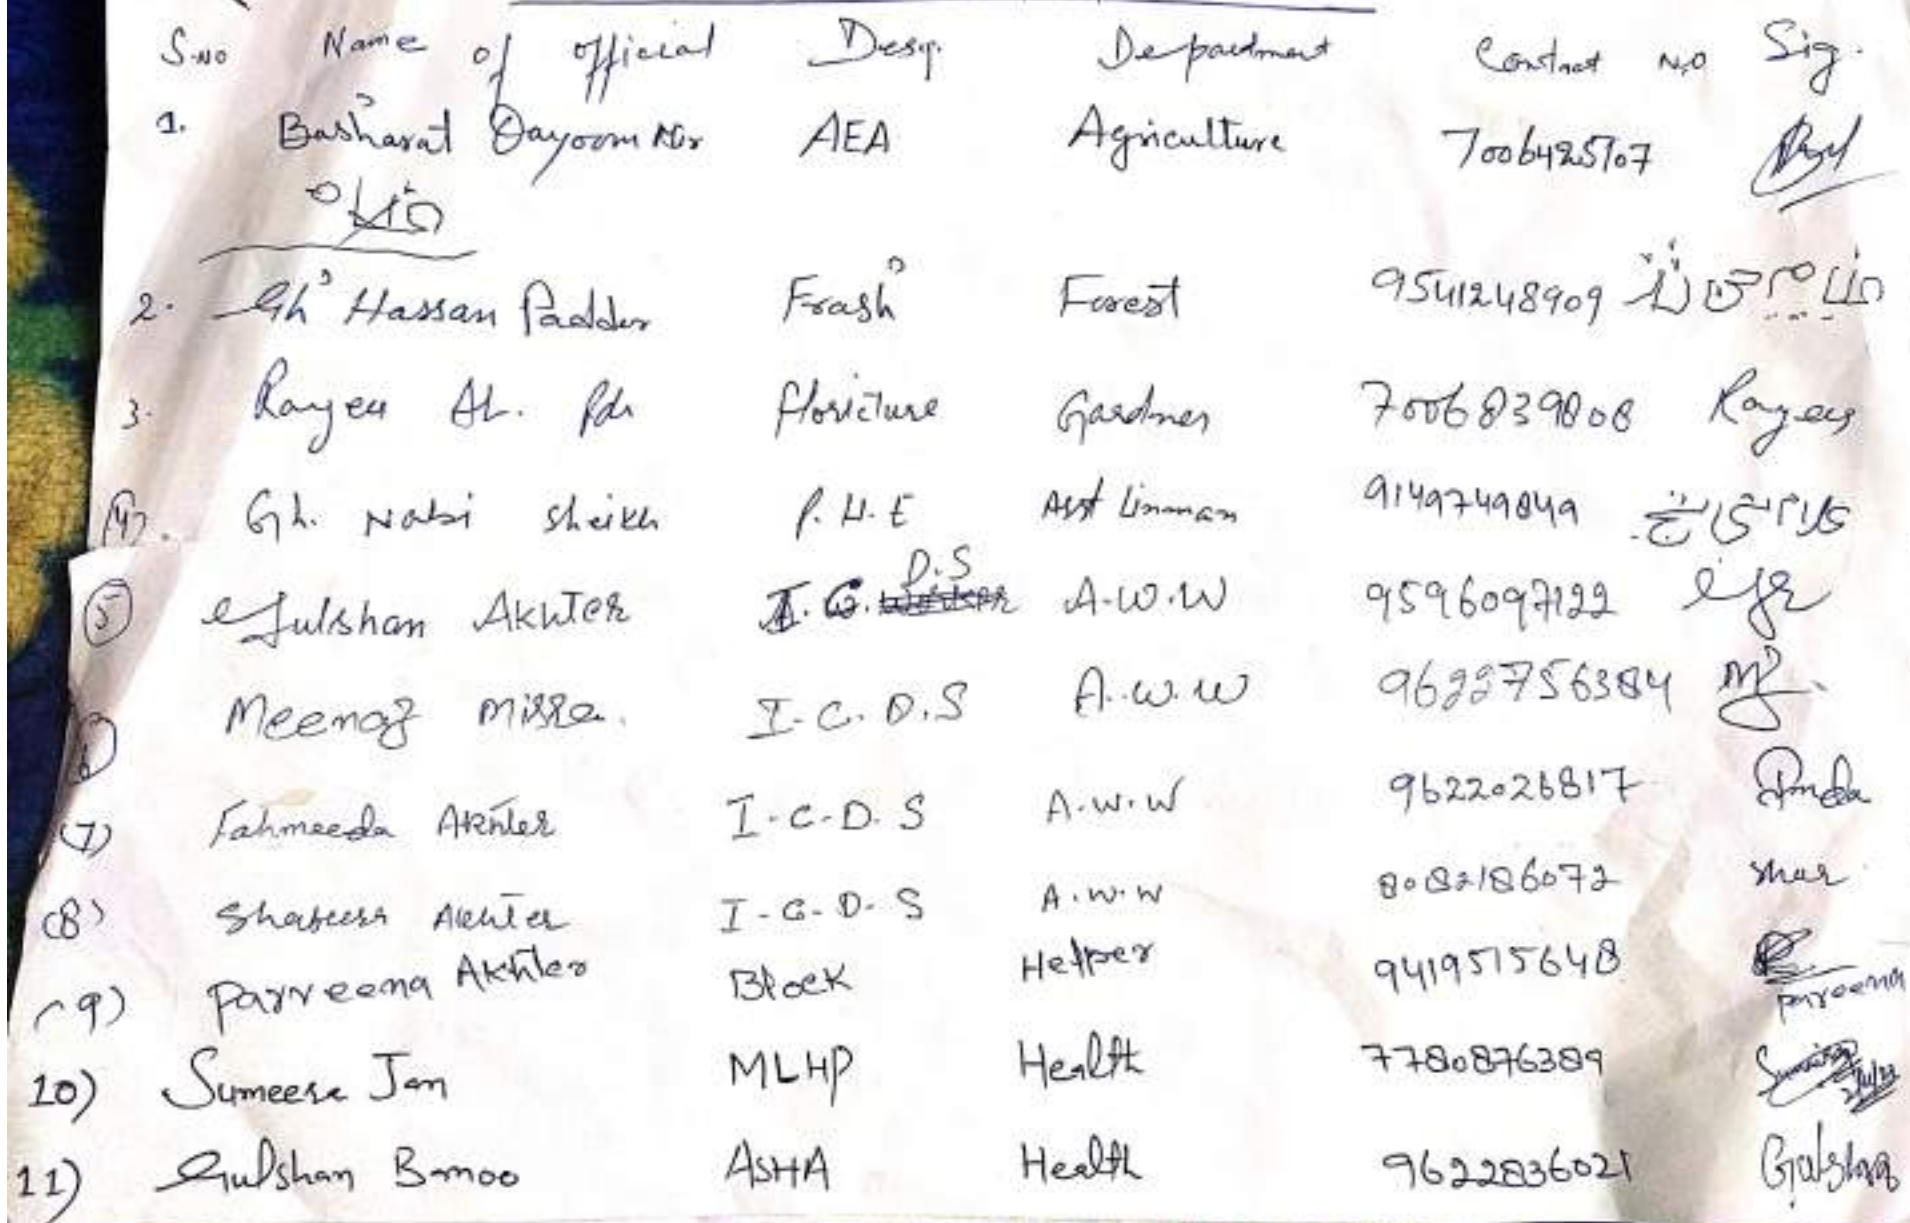 S.No Name of official Desg. Department Contact No Sig.
1. Basharat Qayoom Mir AEA Agriculture 7006425107
2. Gh Hassan Padder Frash Forest 9541248909
3. Rayees Ah. Pdr floricture Gardner 7006839808 Rayees
(4). Gh. Nabi Sheikh P.H.E Asst Linman 9149749849
(5) Gulshan Akhter I.C. D.S A.W.W 9596097122
6 Meenaz Missa. I-C.D.S A.W.W 9622756384
(7) Fahmeeda Akhter I-C-D.S A.W.W 9622026817
(8) Akhter I-C-D-S A.W.W 8082186072
(9) Parveena Akhter Block Helper 9419515648 Parveena
10) Sumeera Jan MLHP Health 7780876389
11) Gulshan Banoo ASHA Health 9622836021 Gulshan